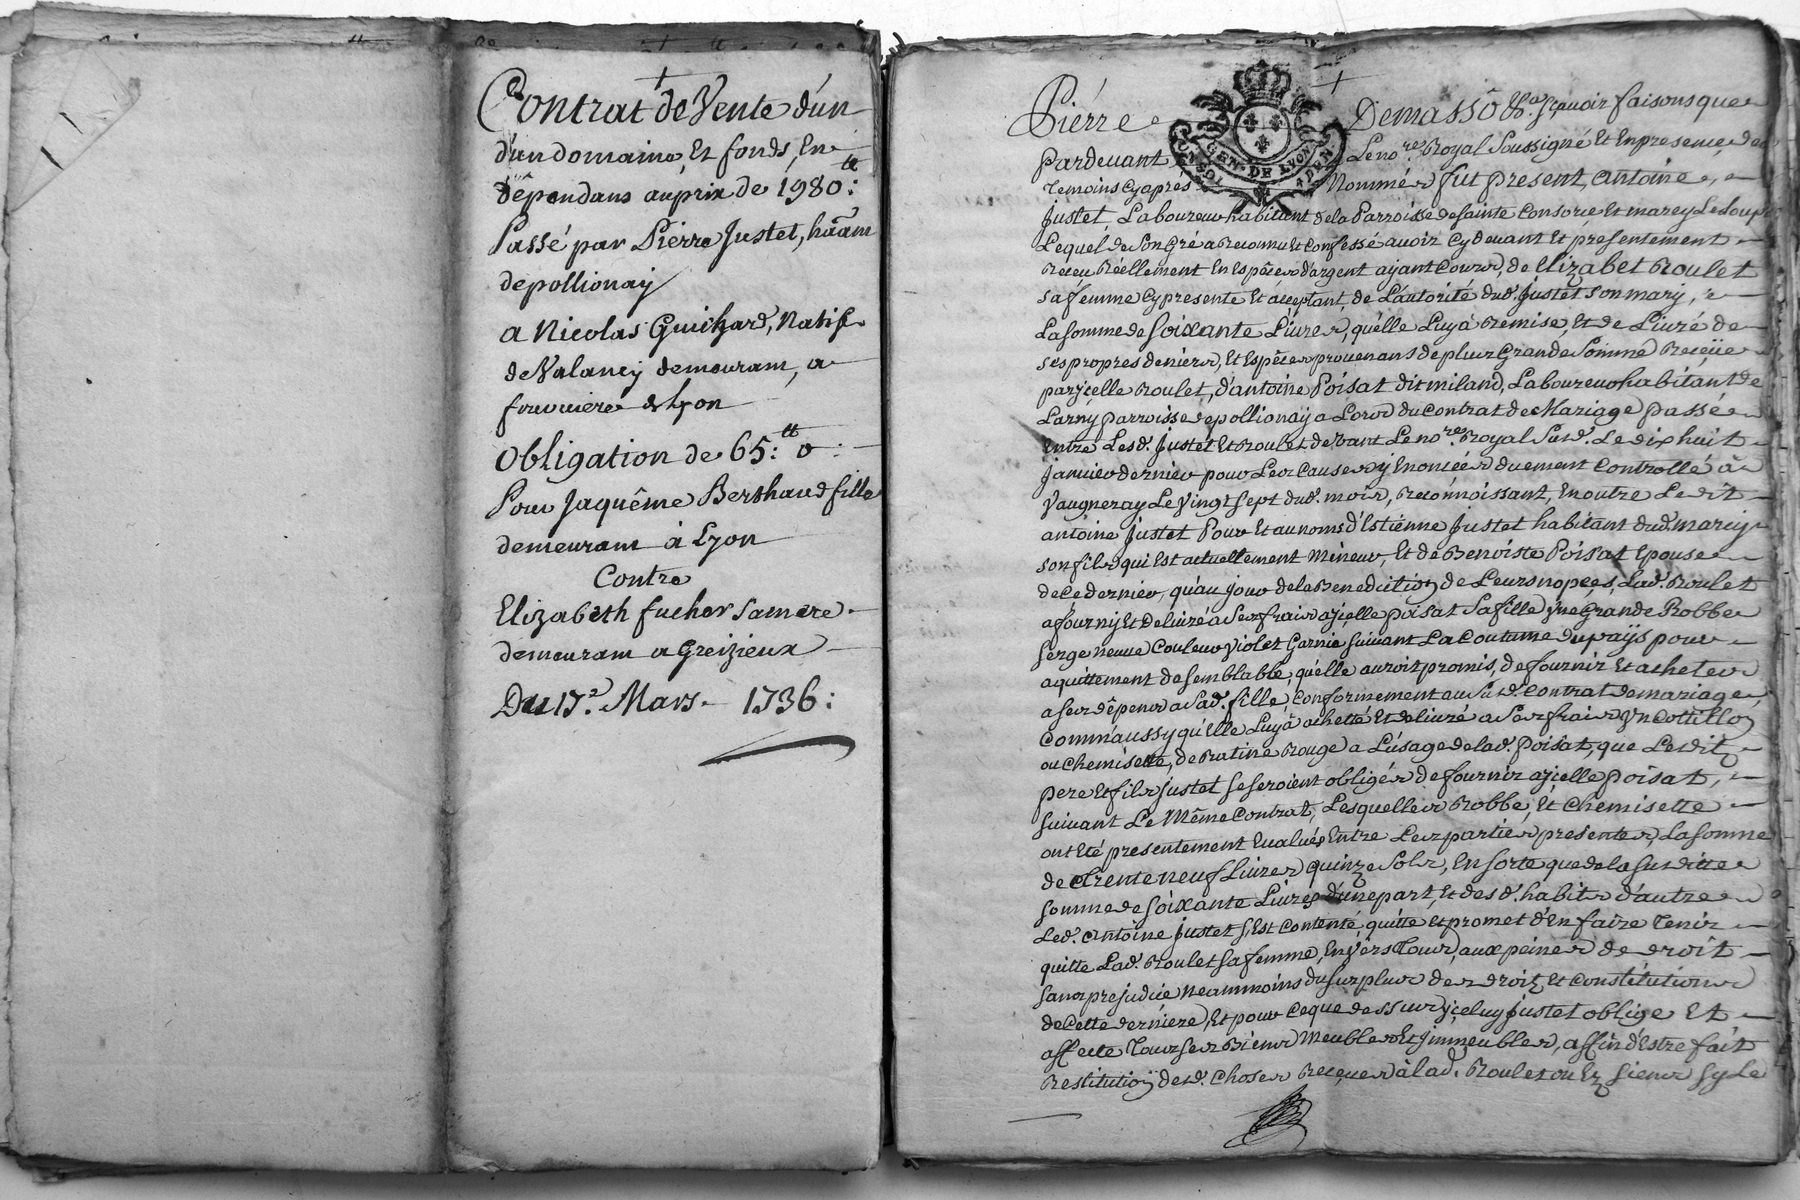 Contrat de Vente d'un
d'un domaine, Et fonds, En
dêpendans au prix de 1980:tt
Passé par Pierre Justet, hãam
de pollionaÿ
a Nicolas Guichard, Natif
de Valancy demeuram, a
fourviere à Lyon
Obligation de 65:tt 0:
Pour Jaquême Berthaud fille
demeuram à Lyon
Contre
Elizabeth fucher sa mere
demeuram a Greizieux
Du 17e Mars 1736:
Pierre Demasso &a sçavoir faisons que
GEN. DE LYON
Pardevant Le nore Royal Soussigné Et En presence des
Temoins cy apres Nommés fut present, antoine
Justet, Laboureur habitant de la Parroisse de sainte Consorce Et marcy Le Loup
Lequel de son Gré a Reconnu Et confessé avoir cy devant Et presentement
Reçeu Réellement En Espêces d'argent ayant cours, de Elizabet Roulet
sa femme cy presente Et acceptant, de L'autorité dud. Justet son mary,
La somme de soixante Livres, qu'elle Luy à Remise, Et de Livré de
ses propres deniers, Et Espêces provenans de plus Grande Somme Reçeüe
par ycelle Roulet, d'antoine Poisat dit miland, Laboureur habitant de
Larny parroisse de pollionaÿ a Lorod du Contrat de Mariage passé
Entre Lesd. Justet Et Roulet devant Le nore Royal Susd. Le dix huit
janvier dernier pour Les Causes y Enoncées duement Controllé à
Vaugneray Le Vingt sept dud. mois, Reconnoissant, En outre Ledit
antoine Justet Pour Et au noms d'Estienne Justet habitant dud. marcy
son fils qui Est actuellement Mineur, Et de Benoiste Poisat Epouse
de ce dernier, qu'au jour de la Benediction de Leurs nopçes, Lad. Roulet
a fourny Et de livré a Ses frais a ycelle poisat Sa fille yne Grande Robbe
serge neuve Couleur Violet Garnie suivant La Coutume du païs pour
aquittement de semblable, qu'elle auroit promis, de fournir Et acheter
a ses dêpens a Sad. fille, Conformement au Sud. Contrat de mariage,
Comm'aussy qu'Elle Luy à achetté Et de livré a Ses frais Vn Cottillon
ou Chemisette, de Ratine Rouge a L'usage de lad. poisat, que Lesdits
pere Et fils Justet se seroient obligés de fournir a ycelle poisat,
suivant Le Même Contrat, Lesquelles Robbe, Et Chemisette
ont Eté presentement Evalués Entre Les parties presentes, La somme
de Trente neuf Livres quinze Sols, En sorte que de la Susditte
somme de soixante Livres d'une part, Et desd. habits d'autre
Led. Antoine Justet s'Est Contenté, quitte Et promet d'En faire Tenir
quitte Lad. Roulet sa femme, Envers Tous, aux peines de droit
sans prejudice neammoins du surplus des droits Et Constitutions
de Cette derniere, Et pour Ceque dessus yceluy Justet oblige Et
affecte Tous ses Biens Meubles Et Jmmeubles, affin d'Estre fait
Restitution desd. Choses Reçeues à lad. Roulet ou Ez siens sy Le